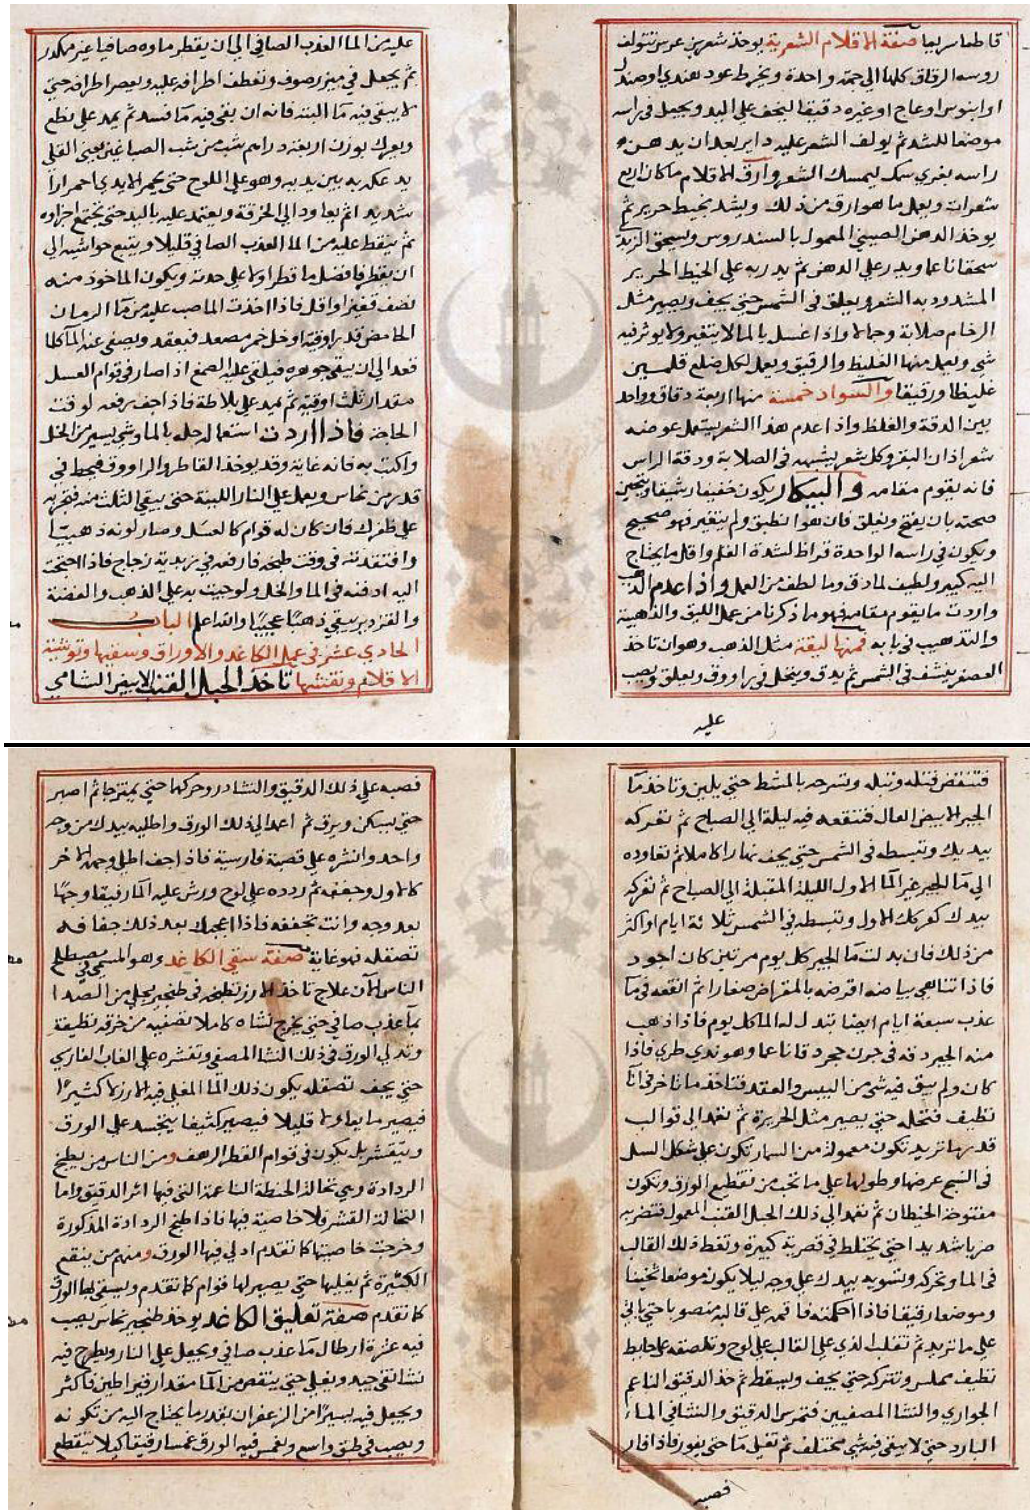 قاطعا سريعا صفة الاقلام الشعرية يوخذ شعر من عرس تتولف
روسه الرقاق كلها الي جهة واحدة ويخرط عود هندي او صندل
او ابنوس او عاج او غيره دقيقا ليخف علي اليد ويجعل في راسه
موضعا للشد ثم يولف الشعر عليه داير بعد ان يدهن
راسه بغري سمك ليمسك الشعر وارق الاقلام ما كان اربع
شعرات ويعمل ما هو ارق من ذلك ويشد بخيط حرير ثم
يوخذ الدهن الصيني المعمول بالسندروس ويسحق الزبد
سحقا ناعما ويدر علي الدهن ثم يدر به علي الخيط الحرير
المشدود به الشعر ويعلق في الشمس حتي يجف ويصير مثل
الرخام صلابة وجمالا واذا غسل بالما لا يتغير ولا يوثر فيه
شي ويعمل منها الغليظ والرقيق ويعمل لكل صلع قلمين
غليظا ورقيقا والسواد خمسة منها اربعة دقاق وواحد
بين الدقة والغلظ واذا عدم هذا الشعر يستعمل عوضه
شعر اذان البقر وكل شعر يشبهه في الصلابة ودقة الراس
فانه يقوم مقامه والبيكار يكون خفيفا رشيقا ويمتحن
صحته بان يفتح ويغلق فان هو انطبق ولم يتغير فهو صحيح
ويكون في راسه الواحدة قراظ لشدة القلم واقل ما يحتاج
اليه كبير ولطيف لما دق وما لطف من العمل واذا عدم الذهب
واردت ما يقوم مقامه فهو ما ذكرنا من عمل الليق والذهبية
والتذهيب في بابه فمنها ليقة مثل الذهب وهو ان تاخذ
العصفر ينشف في الشمس ثم يدق وينخل في راووق ويعلق ويصب
عليه
عليه من الما العذب الصافي الي ان يقطر ماوه صافيا غير مكدر
ثم يجعل في ميزر صوف وتعطف اطرافه عليه ويعصر اطرافه حتي
لا يبقي فيه ما البتة فانه ان بقي فيه ما فسد ثم يمد علي نطع
ويعرك بوزن اربعة دراهم شب من شب الصباغين يعني القلي
يدعك به بين يديه وهو علي اللوح حتي يحمر الايدي احمرارا
شديدا ثم يعاود الي الخرقة ويعتمد عليه باليد حتي تجتمع اجزاوه
ثم ينقط عليه من الما العذب الصافي قليلا ويتبع حواشيه الي
ان يقطر فافضل ما قطر اولا علي حدته ويكون الماخوذ منه
نصف قفيز او اقل فاذا اخذت الما صب عليه من ما الرمان
الحامض قدر اوقية او خل خمر مصعد فيعقد ويصفي عنه الما كلما
قعد الي ان يبقي جوهره فيلقي عليه الصمغ اذا صار في قوام العسل
مقدار ثلث اوقية ثم يمد علي بلاطة فاذا جف رفعه لوقت
الحاجة فاذا اردت استعماله حله بالما وشي يسير من الخل
واكتب به فانه غاية وقد يوخذ القاطر والراووق فيحط في
قدر من نحاس ويعمل علي النار اللينة حتي يبقي الثلث منه فتجربه
علي ظفرك فان كان له قوام كالعسل وصار لونه ذهبيا
وافتقدته في وقت طبخه فارفعه في بزيدية زجاج فاذا احتجت
اليه ادفنه في الما والخل ولو جيت به علي الذهب والفضة
والقزدير يبقي ذهبا عجيبا والله اعلم الباب
الحادي عشر في عمل الكاغد والاوراق وسقيها وتوشية
الاقلام ونقشها تاخذ الحبل القنب الابيض الشامي
فتنقض فتله وتبله وتسرحه بالمشط حتي يلين وتاخذ ما
الجير الابيض العال فتنقعه فيه ليلة الي الصباح ثم تفركه
بيديك وتبسطه في الشمس حتي يجف نهارا كاملا ثم تعاوده
الي ما الجير غير الما الاول الليلة المقبلة الي الصباح ثم تفركه
بيدك كفركك الاول وتبسطه في الشمس ثلاثة ايام او اكثر
من ذلك فان بدلت ما الجير كل يوم مرتين كان اجود
فاذا تناهي بياضه اقرضه بالمقراض صغارا ثم انقعه في ما
عذب سبعة ايام ايضا تبدل له الما كل يوم فاذا ذهب
منه الجير دقه في جرن حجر دقا ناعما وهو ندي طري فاذا
كان ولم يبق فيه شي من اليبس والعقد فتاخذ ما اخر في انا
نظيف فتحله حتي يصير مثل الحريرة ثم تعمد الي قوالب
قدر ما تريد تكون معمولة من السمار تكون علي شكل السل
في النسج عرضها وطولها علي ما تحب من تقطيع الورق وتكون
مفتوحة الحيطان ثم تعمد الي ذلك الحبل القنب المعمول فتضربه
ضربا شديدا حتي يختلط في قصرية كبيرة وتغط ذلك القالب
في الما وتحركه وتسويه بيدك علي وجه ليلا يكون موضعا ثخينا
وموضعا رقيقا فاذا احكمته فاقمه علي قالبه منصوبا حتي ياتي
علي ما تريد ثم تقلب الذي علي القالب علي لوح وتلصقه علي حايط
نظيف مملس وتتركه حتي يجف ويسقط ثم خذ الدقيق الناعم
الجواري والنشا المصفيين فتمرس الدقيق والنشا في الماء
البارد حتي لا يبقي فيه شي مختلف ثم تغلي ما حتي يفور فاذا فار
فصبه
فصبه علي ذلك الدقيق والنشا دورحركها حتي يمتزجا ثم اصبر
حتي يسكن ويرق ثم اعمد الي ذلك الورق واطليه بيدك من وجه
واحد وانشره علي قصبة فارسية فاذا جف اطلي وجهه الاخر
كالاول وجففه ثم ردده علي لوح ورش عليه الما رقيقا وجها
بعد وجه وانت تجففه فاذا اعجبك بعد ذلك جفافه
تصقله فهو غاية صفة سقي الكاغد وهو المسمي في مصطلح
الناس الان علاج تاخذ الارز تطبخه في طنجير يجلي من الصدا
بما عذب صافي حتي يخرج نشاه كاملا تصفيه من خرقة نظيفة
وتدلي الورق في ذلك النشا المصفي وتنشره علي الغاب الفارسي
حتي يجف تصقله يكون ذلك الما المغلي فيه الارز لا كثيرا
فيصير مايعا ولا قليلا فيصير كثيفا يتجسد علي الورق
ويتقشر بل يكون في قوام القطر الرهف ومن الناس من يطبخ
الردادة وهي نخالة الحنطة الناعمة التي فيها اثر الدقيق واما
النخالة القشر فلا خاصية فيها فاذا طبخ الردادة المذكورة
وخرجت خاصيتها كما تقدم ادلي فيها الورق ومنهم من ينقع
الكثيرة ثم يغليها حتي يصير لها قوام كما تقدم ويسقي بها الورق
كما تقدم صفة تعليق الكاغد يوخذ طنجير نحاس يصب
فيه عشرة ارطال ما عذب صافي ويجعل علي النار ويطرح فيه
نشا نقي جيد ويغلي حتي ينقص من الما مقدار قيراطين فاكثر
ويجعل فيه يسيرا من الزعفران بقدر ما يحتاج اليه من تكونه
ويصب في طبق واسع ويغمس فيه الورق غمسا رقيقا كيلا ينقطع